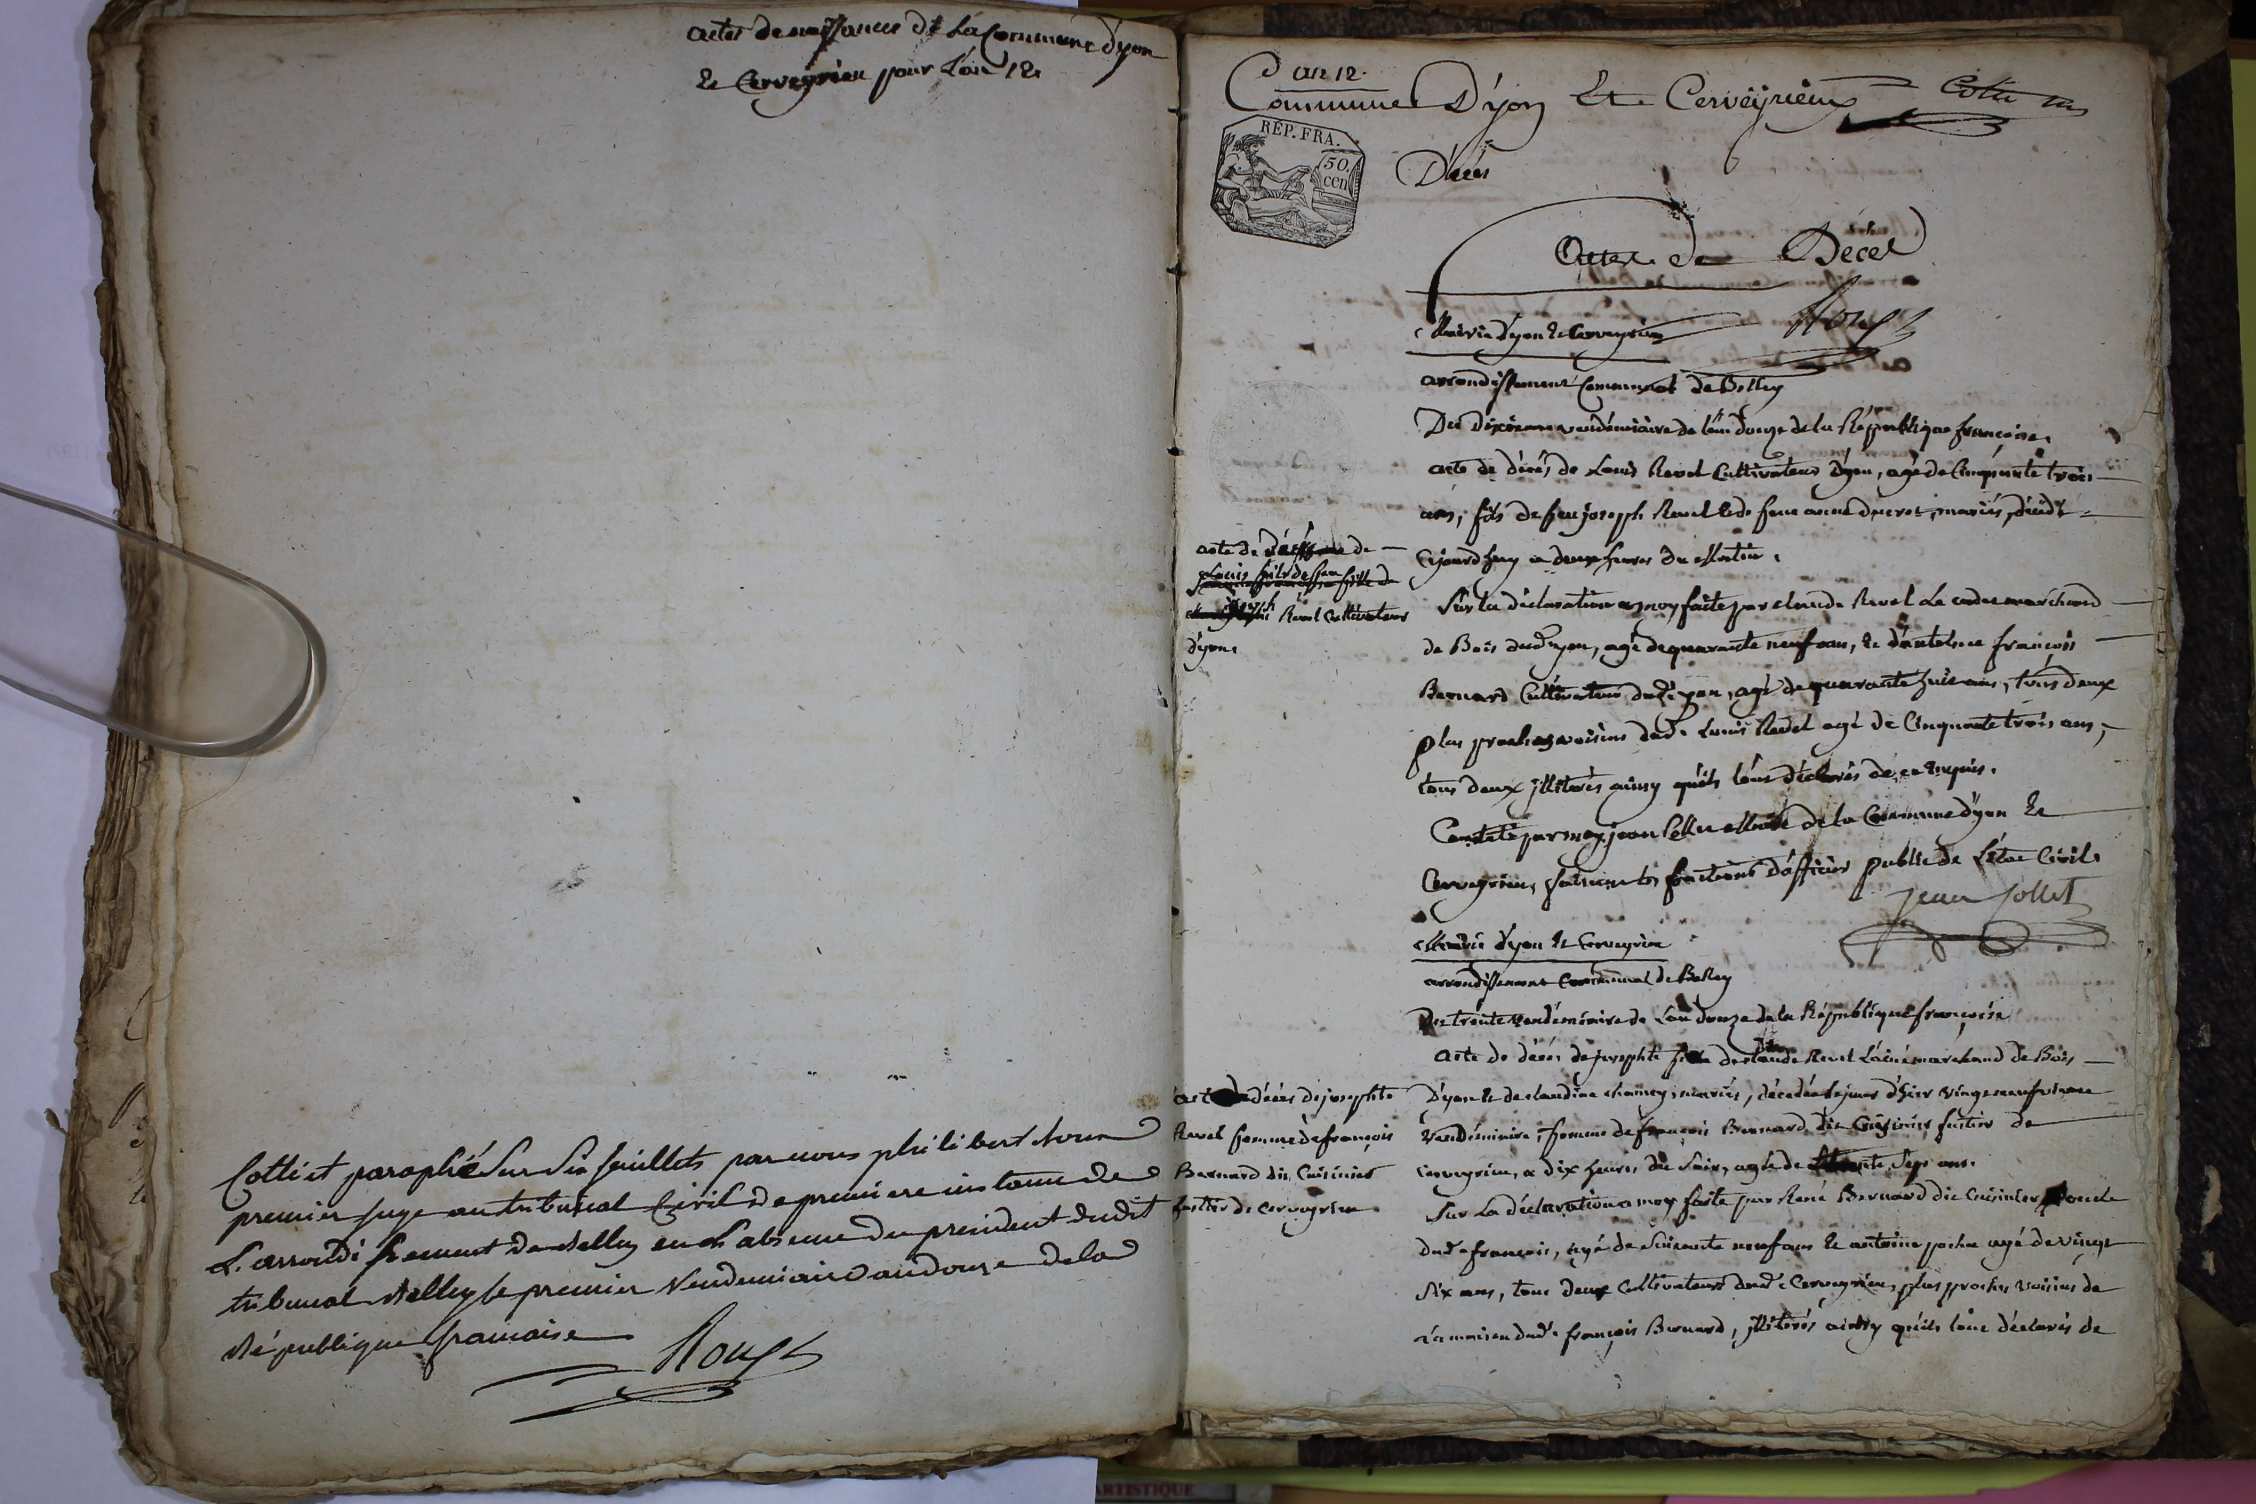 actes de naissances de La Commune d'yon
et Cerveyrieu pour L'an 12
Cotté et paraphé Sur Six feuillets par nous philibert
premier juge au tribunal Civil de premiere instance de
L'arrondissement de Belley en L'absence du president dudit
tribunal Belley le premier Vendemiaire an douze de la
République francaise
Rouph
an 12.
Commune D'yon Et Cerveyrieux
RÉP. FRA.
50.
cen
Décés
Actes de Décés
Mairie d'yon et Cerveyrieu
arrondissement Communal de Belley
Du dixieme vendémiaire de l'an douze de la République françoise.
acte de décés de Louis Revel Cultivateur d'yon, agé de Cinquante trois
ans, fils de feu joseph Revel et de feue mariés, décédé
ajourd'huy a deux heures du Matin.
acte de décés de
Louis fils de feu
joseph Revel Cultivateur
d'yon.
Sur la déclaration a moy faite par claude Revel Le cadet marchand
de Bois dud. yon, agé de quarante neuf ans, et d'antoine françois
Bernard Cultivateur dud. yon, agé de quarante huit ans, tous deux
plus proches voisins dud. Louis Revel agé de Cinquante trois ans,
tous deux illiterés ainsy qu'ils l'ont déclarés de ce enquis.
Constaté par moy jean Maire de la Commune d'yon et
Cerveyrieu, faisant les fonctions d'officier public de L'état Civil.
jean
Mairie d'yon et Cerveyrieu
arrondissement Communal de Belley
Du trente vendémiaire de Lan douze de la République françoise
acte de décés de josephte fille de claude Revel L'ainé marchand de Bois
d'yon et de claudine mariés, décédée le jour d'hier vingt neuf
vendémiaire, femme de françois Bernard dit Cuisinier fustier de
Cerveyrieu, a dix heures du Soir, agée de Sept ans.
acte de décés de josephte
Revel femme de françois
Bernard dit Cuisinier
fustier de Cerveyrieu
Sur La déclaration a moy faite par René Bernard dit Cuisinier oncle
dud. françois, agé de Soixante neuf ans et antoine agé de vingt
Six ans, tous deux Cultivateurs dud. Cerveyrieu, plus proches voisins de
la maison dud. françois Bernard, illiterés ainsy qu'ils l'ont déclarés de